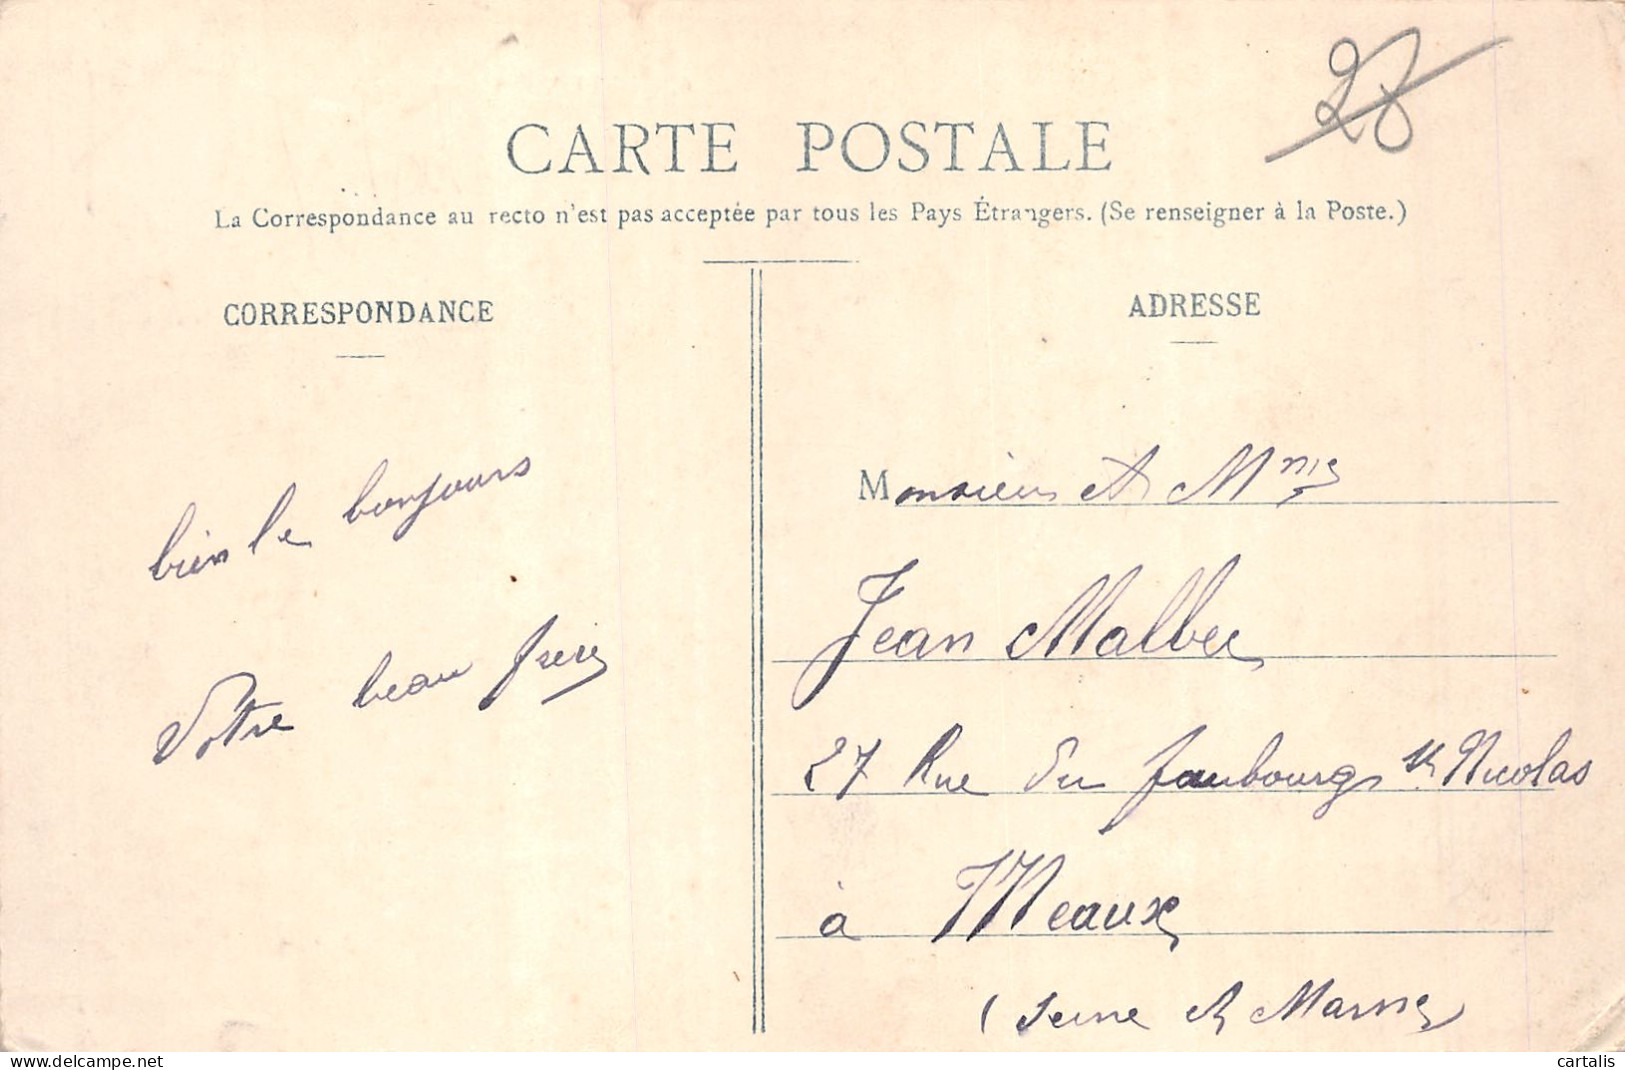 28
CARTE POSTALE
La Correspondance au recto n'est pas acceptée par tous les Pays Étrangers. (Se renseigner à la Poste.)
CORRESPONDANCE
bien le bonjours
Votre beau frère
ADRESSE
Monsieur et Mme
Jean Malbec
27 Rue du faubourg St Nicolas
à Meaux
(Seine et Marne
cartalis
www.delcampe.net